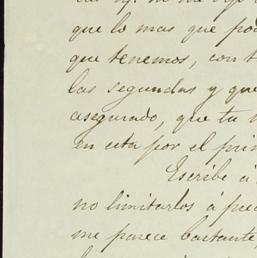 que lo mas que pod
que tenemos, con t
las segundas y que
asegurado, que tu
en esta por el pri
Escribe á
no limitarlos á pue
me parece bastante,